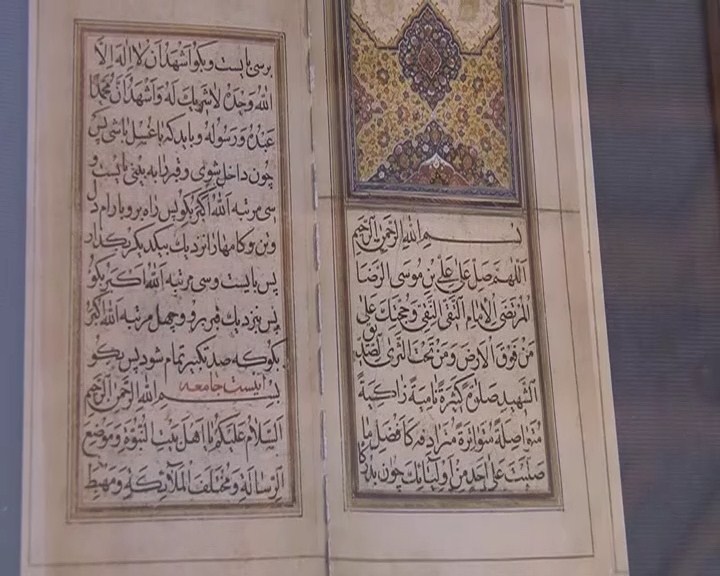 بسم الله الرحمن الرحیم
اللهم صل علی علی بن موسی الرضا
المرتضی الامام التقی النقی وحجتک علی
من فوق الارض ومن تحت الثری الصدیق
الشهید صلوة کثیرة تامیة زاکیة
متواصلة متواترة مترادفة کافضل ما
صلیت علی احد من اولیائک چون بدرگا
برسی بایست و بگو اشهد ان لا اله الا
الله وحده لا شریک له و اشهد ان محمدا
عبده ورسوله و باید که با غسل باشی پس
چون داخل شوی و قبر را به بینی بایست و
سی مرتبه الله اکبر بگو پس راه برو بارام دل
و تن و گامها را نزدیک بیکدیگر گذار
پس بایست و سی مرتبه الله اکبر بگو
پس نزدیک قبر رو و چهل مرتبه الله اکبر
بگو که صد تکبیر تمام شود پس بگو
اینست جامعه
بسم الله الرحمن الرحیم
السلام علیکم یا اهل بیت النبوة وموضع
الرسالة ومختلف الملآئکة ومهبط